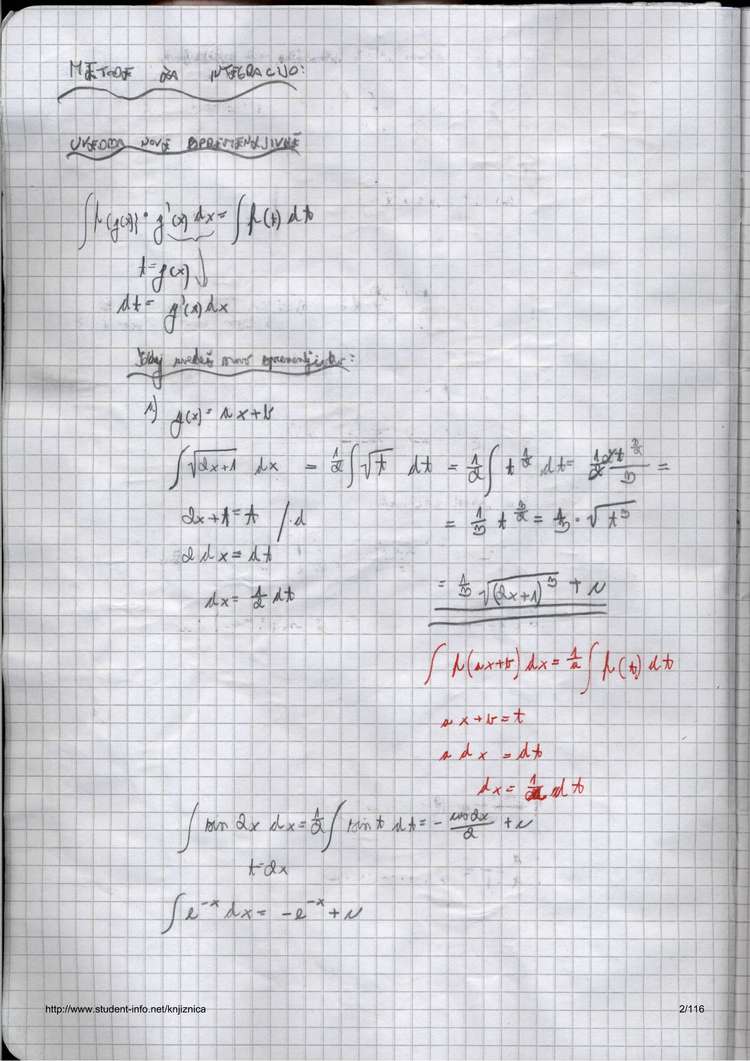 METODE ZA INTEGRACIJO:
UVEDBA NOVE SPREMENLJIVKE
∫ f(g(x)) · g'(x) dx = ∫ f(t) dt
t = g(x)
dt = g'(x) dx
Kdaj uvedeš novo spremenljivko:
1) g(x) = ax+b
∫ √(2x+1) dx = 1/2 ∫ √t dt = 1/2 ∫ t^(1/2) dt = 1/2 2t^(3/2)/3 =
2x+1 = t /·d
= 1/3 t^(3/2) = 1/3 · √(t^3)
2 dx = dt
dx = 1/2 dt
= 1/3 √((2x+1)^3) + c
∫ f(ax+b) dx = 1/a ∫ f(t) dt
ax+b = t
a dx = dt
dx = 1/a dt
∫ sin 2x dx = 1/2 ∫ sin t dt = - cos 2x/2 + c
t = 2x
∫ e^(-x) dx = -e^(-x) + c
http://www.student-info.net/knjiznica 2/116